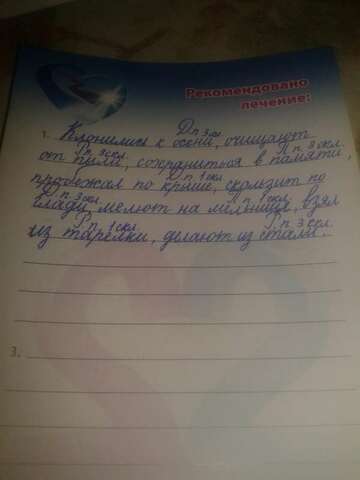 Рекомендовано
лечение:
Д п 3 скл
1. Клонились к осени, очищают
Р п 3 скл. П п 3 скл.
от пыли, сохраниться в памяти,
Д п 1 скл
пробежал по крыше, скользит по
Д п 3 скл. П п 1 скл.
глади, мелют на мельнице, взял
Р п 1 скл Р п 3 скл.
из тарелки, делают из стали.
3.